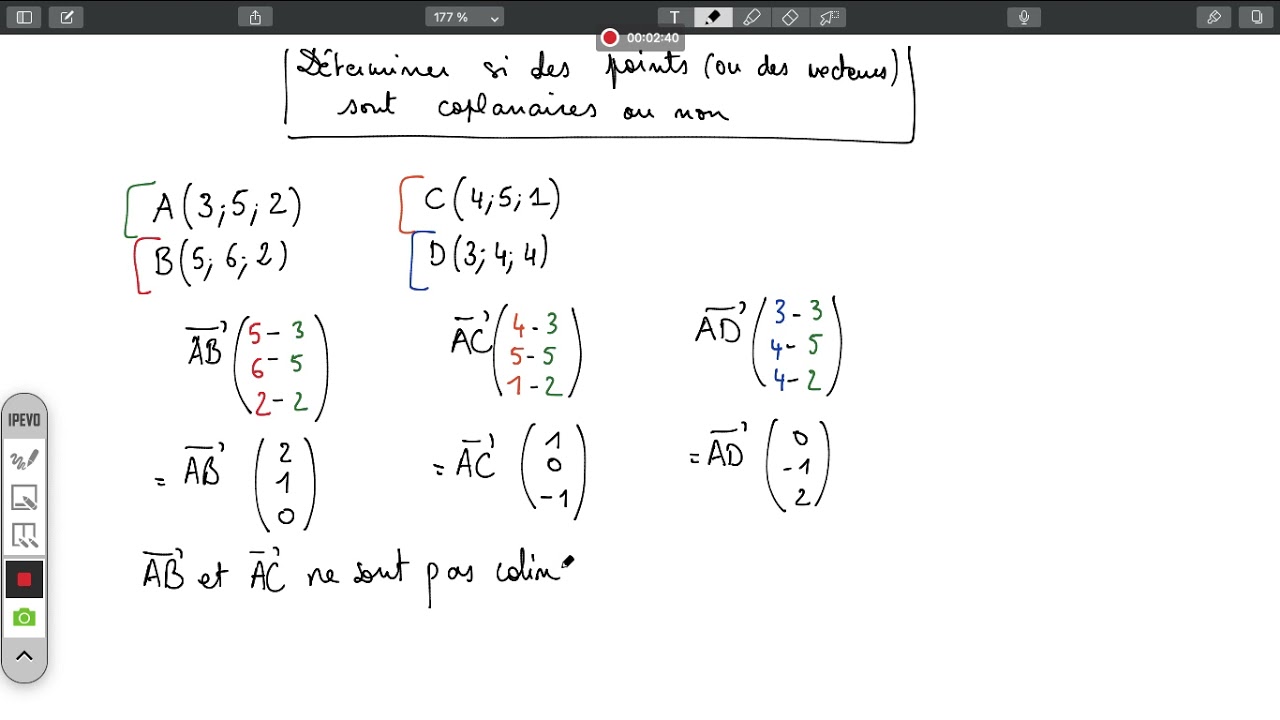 177 %
T
00:02:40
Déterminer si des points (ou des vecteurs)
sont coplanaires ou non
A(3;5;2) C(4;5;1)
B(5;6;2) D(3;4;4)
AB (5-3 6-5 2-2) AC (4-3 5-5 1-2) AD (3-3 4-5 4-2)
= AB (2 1 0) = AC (1 0 -1) = AD (0 -1 2)
IPEVO
AB et AC ne sont pas colin